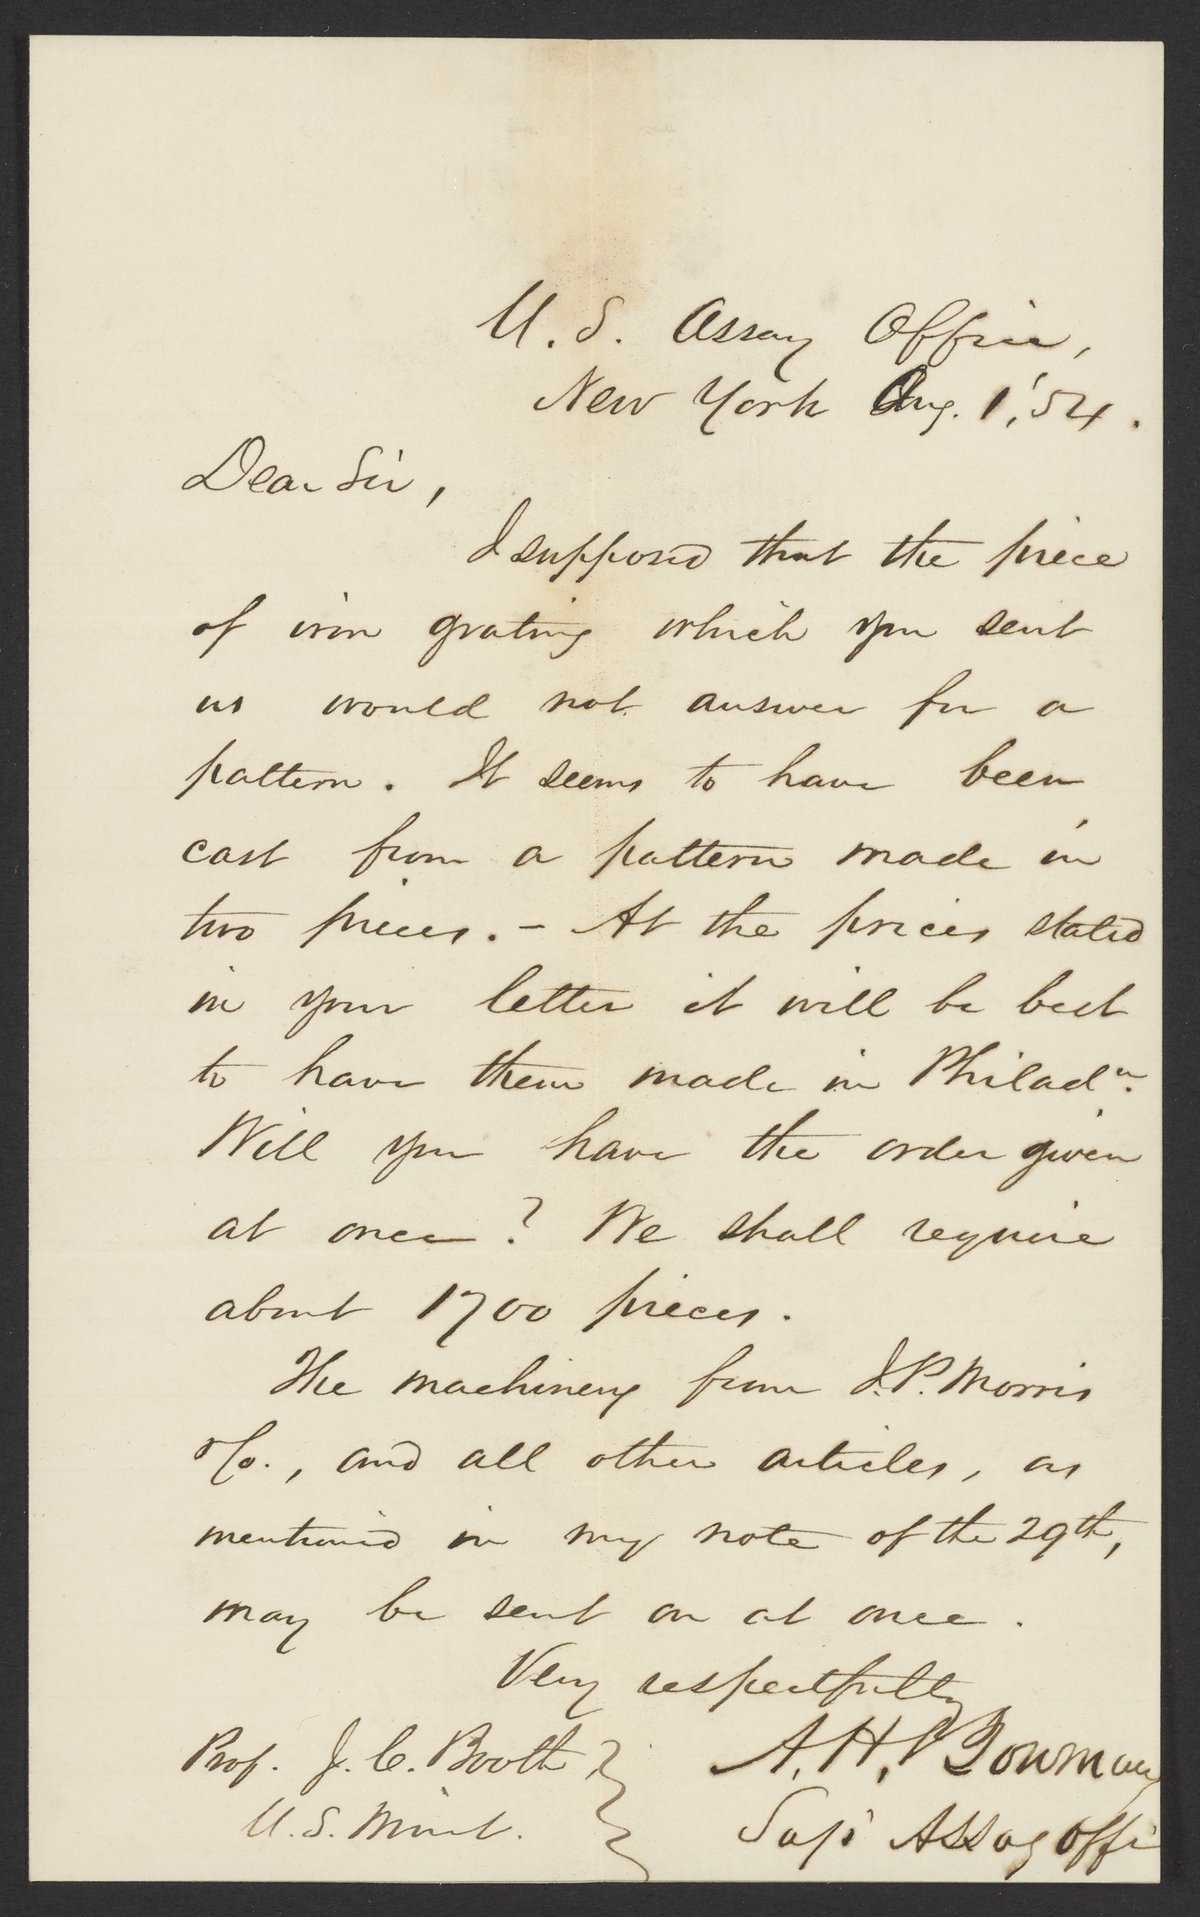 U. S. Assay Office,
New York Aug. 1, '54.
Dear Sir,
I supposed that the piece
of iron grating which you sent
us would not answer for a
pattern. It seems to have been
cast from a pattern made in
two pieces. – At the prices stated
in your letter it will be best
to have them made in Philada.
Will you have the order given
at once? We shall require
about 1700 pieces.
The machinery from I. P. Morris
& Co., and all other articles, as
mentioned in my note of the 29th,
may be sent on at once.
Very respectfully
A. H. Bowman
Prof. J. C. Booth
Assay Offi
U. S. Mint.